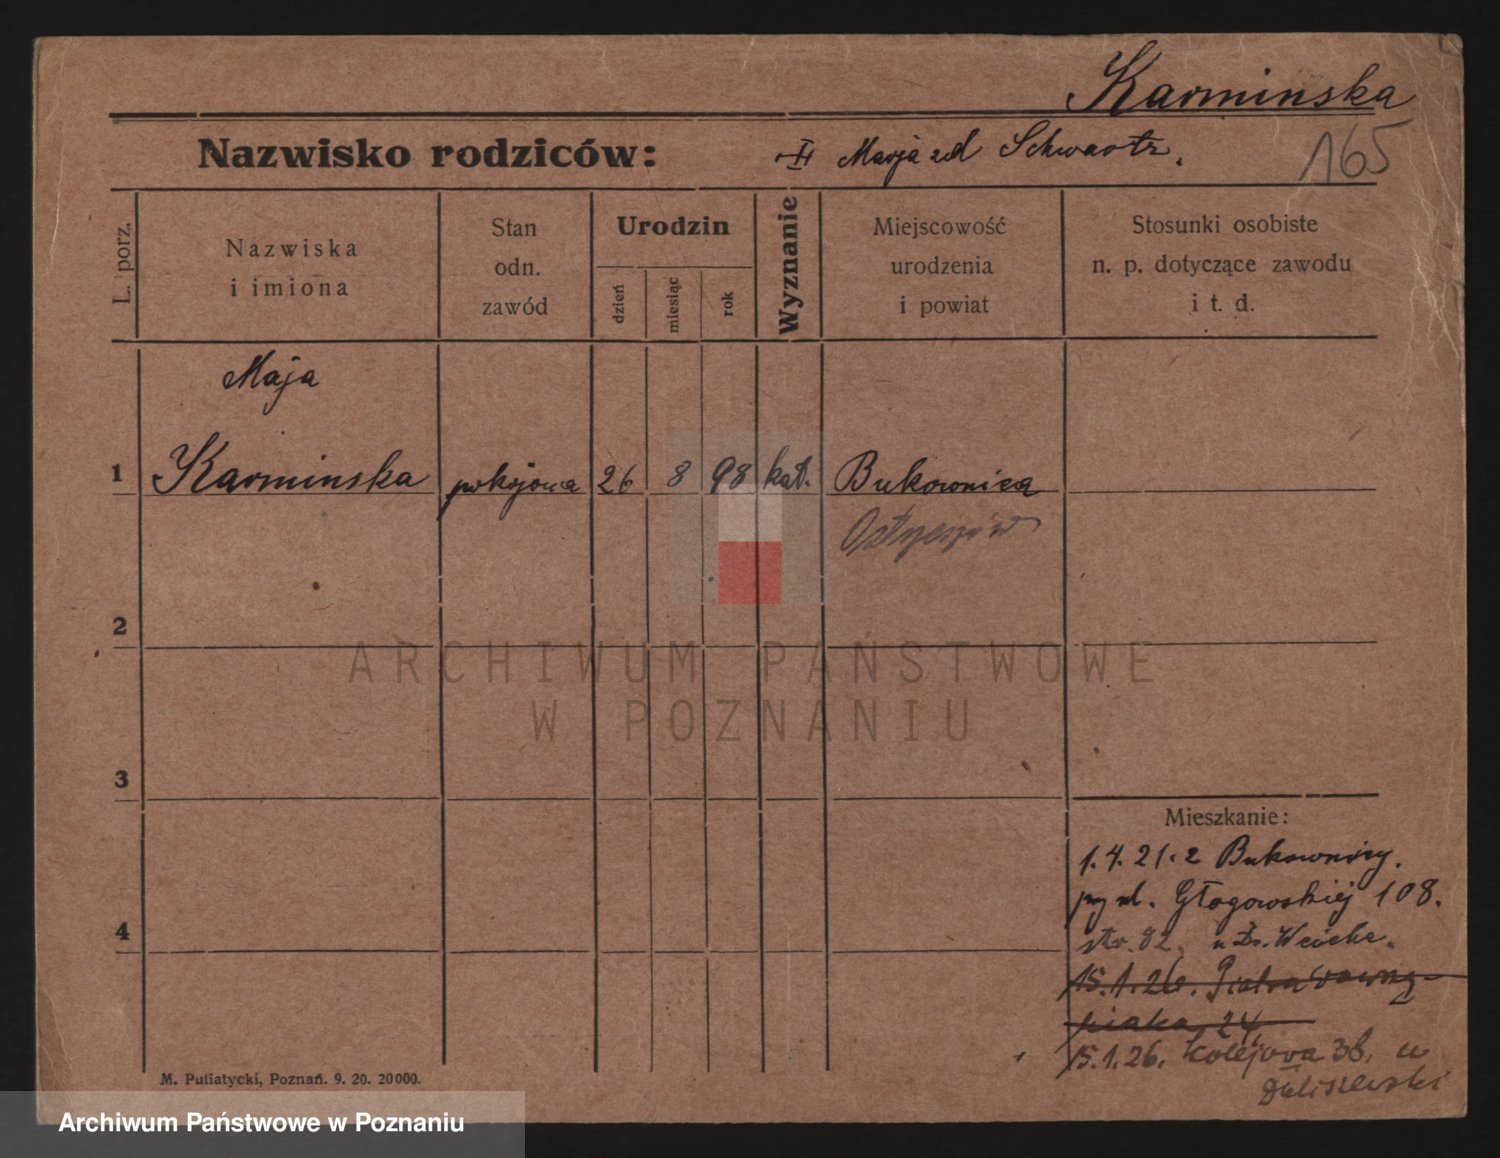 Karminska
165
Nazwisko rodziców: Marja zd Schwartz.
L. porz.
Nazwiska i imiona
Stan odn. zawód
Urodzin
dzień
miesiąc
rok
Wyznanie
Miejscowość urodzenia i powiat
Stosunki osobiste n. p. dotyczące zawodu i t. d.
Maja
1 Karminska pokojowa 26 8 98 kat. Bukownica
2
3
4
ARCHIWUM PAŃSTWOWE
W POZNANIU
Mieszkanie:
1.4.21. z Bukownicy.
ul. Głogowskiej 108.
str. 82. u
15.1.26.
24
15.1.26. Kolejowa 38. u
M. Putiatycki, Poznań. 9. 20. 20000.
Archiwum Państwowe w Poznaniu